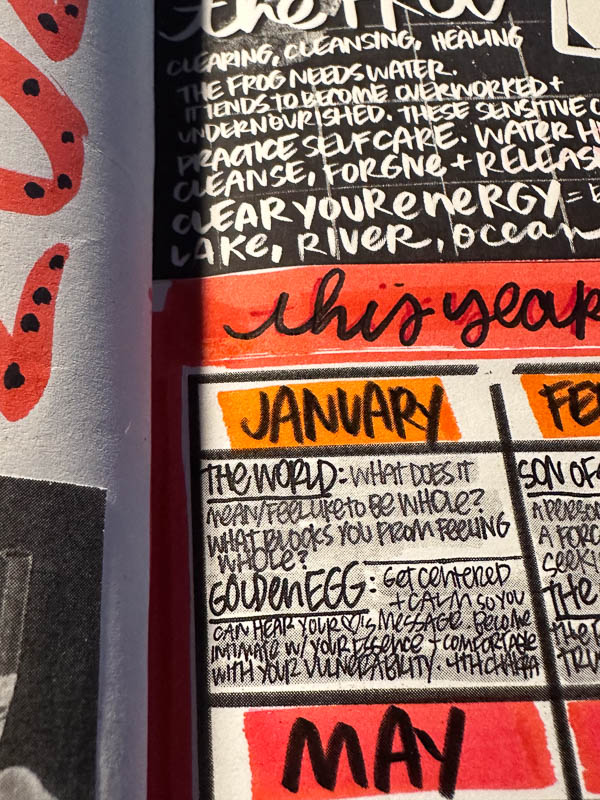 the FROG
CLEARING, CLEANSING, HEALING
THE FROG NEEDS WATER.
IT TENDS TO BECOME OVERWORKED +
UNDERNOURISHED. THESE SENSITIVE C
PRACTICE SELF CARE. WATER H
CLEANSE, FORGIVE + RELEASE
CLEAR YOUR ENERGY =
LAKE, RIVER, OCEAN
this year
JANUARY
THE WORLD: WHAT DOES IT
MEAN/FEEL LIKE TO BE WHOLE?
WHAT BLOCKS YOU FROM FEELING
WHOLE?
GOLDEN EGG: GET CENTERED
+ CALM SO YOU
CAN HEAR YOUR ♡'S MESSAGE. BECOME
INTIMATE W/ YOUR ESSENCE + COMFORTABLE
WITH YOUR VULNERABILITY. 4TH CHAKRA
FE
SON OF
A PERSON
A FORC
SEEKI
THE
THE F
TRU
MAY